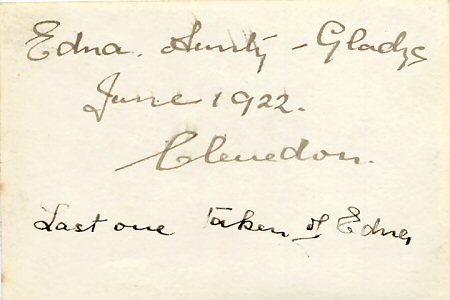 Edna. Aunty - Gladys
June 1922.
Clevedon.
Last one taken of Edna